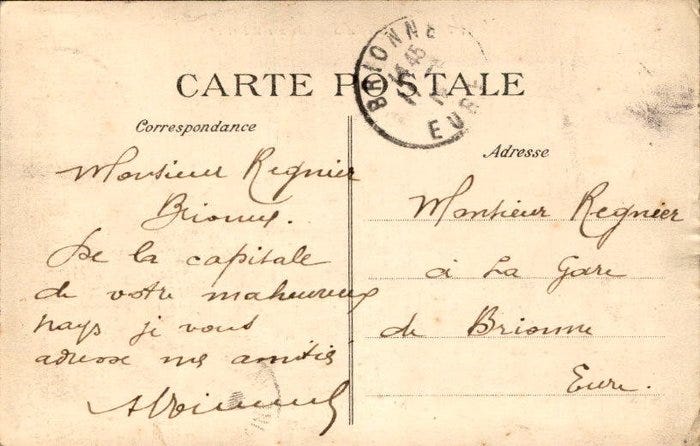 CARTE POSTALE
BRIONNE
14 45
EURE
Correspondance
Monsieur Regnier
Brionne.
De la capitale
de votre maheureux
pays je vous
adresse mes amitiés
Adresse
Monsieur Regnier
à La Gare
de Brionne
Eure.